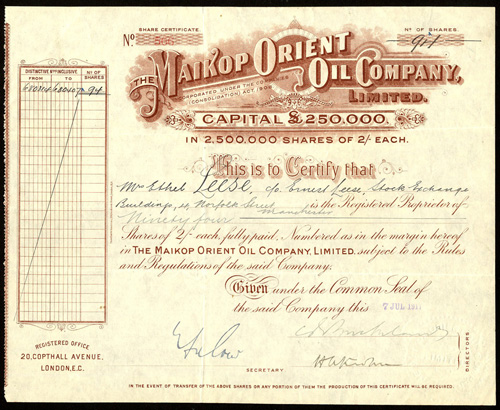 SHARE CERTIFICATE.
Nº
Nº OF SHARES.
94
THE MAIKOP ORIENT OIL COMPANY, LIMITED.
INCORPORATED UNDER THE COMPANIES (CONSOLIDATION) ACT, 1908.
CAPITAL £250,000.
IN 2,500,000 SHARES OF 2/- EACH.
DISTINCTIVE Nos INCLUSIVE
FROM TO
Nº OF SHARES
94
This is to Certify that
Mrs Ethel Leese, c/o Ernest Leese, Stock Exchange
Buildings, Norfolk Street Manchester is the Registered Proprietor of
Ninety four
Shares of 2/- each, fully paid, Numbered as in the margin hereof
in THE MAIKOP ORIENT OIL COMPANY, LIMITED, subject to the Rules
and Regulations of the said Company.
Given under the Common Seal of
the said Company this 7 JUL
DIRECTORS
SECRETARY
REGISTERED OFFICE
20, COPTHALL AVENUE,
LONDON, E.C.
IN THE EVENT OF TRANSFER OF THE ABOVE SHARES OR ANY PORTION OF THEM THE PRODUCTION OF THIS CERTIFICATE WILL BE REQUIRED.